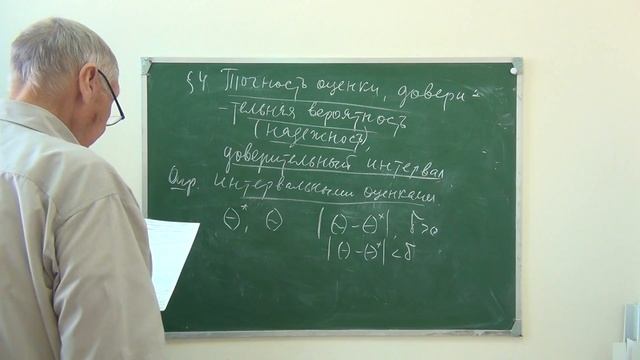 §4 Точность оценки, довери-
-тельная вероятность
(надежность),
доверительный интервал
Опр. интервальными оценками
Θ*, Θ |Θ-Θ*|, δ>0
|Θ-Θ*|<δ